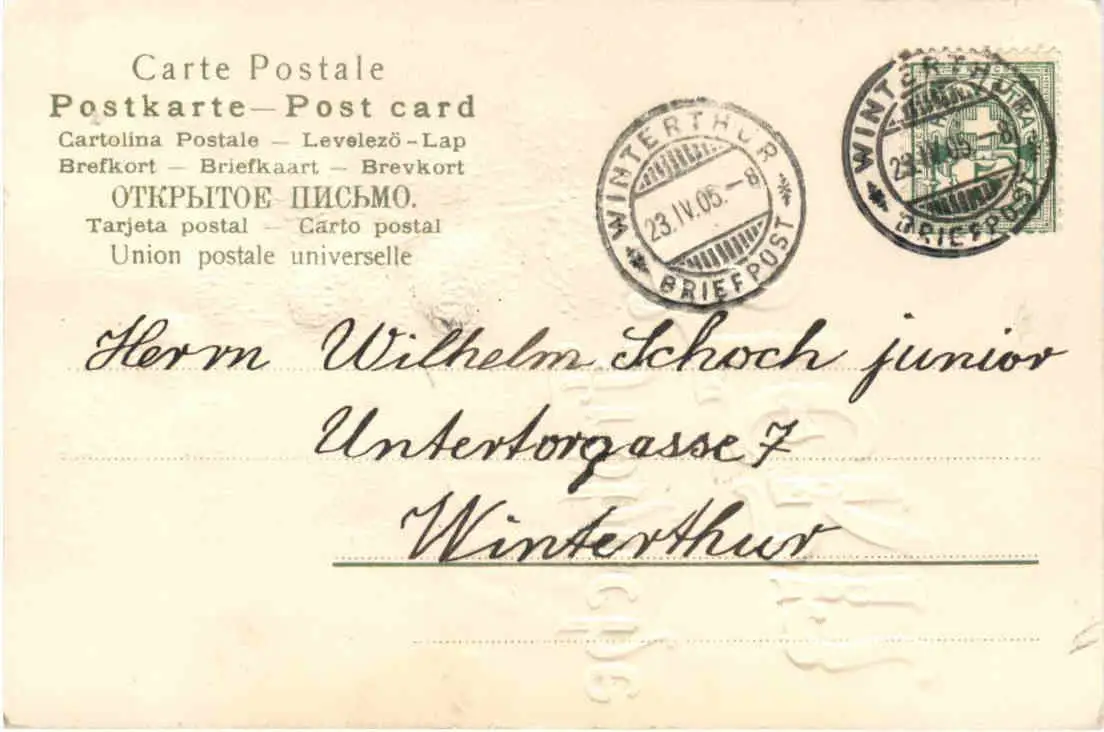 Carte Postale
Postkarte — Post card
Cartolina Postale — Levelező-Lap
Brefkort — Briefkaart — Brevkort
ОТКРЫТОЕ ПИСЬМО.
Tarjeta postal — Carto postal
Union postale universelle
WINTERTHUR
23.IV.05.-8
BRIEFPOST
WINTERTHUR
23.IV.05.-8
BRIEFPOST
Herrn Wilhelm Schoch junior
Untertorgasse 7
Winterthur